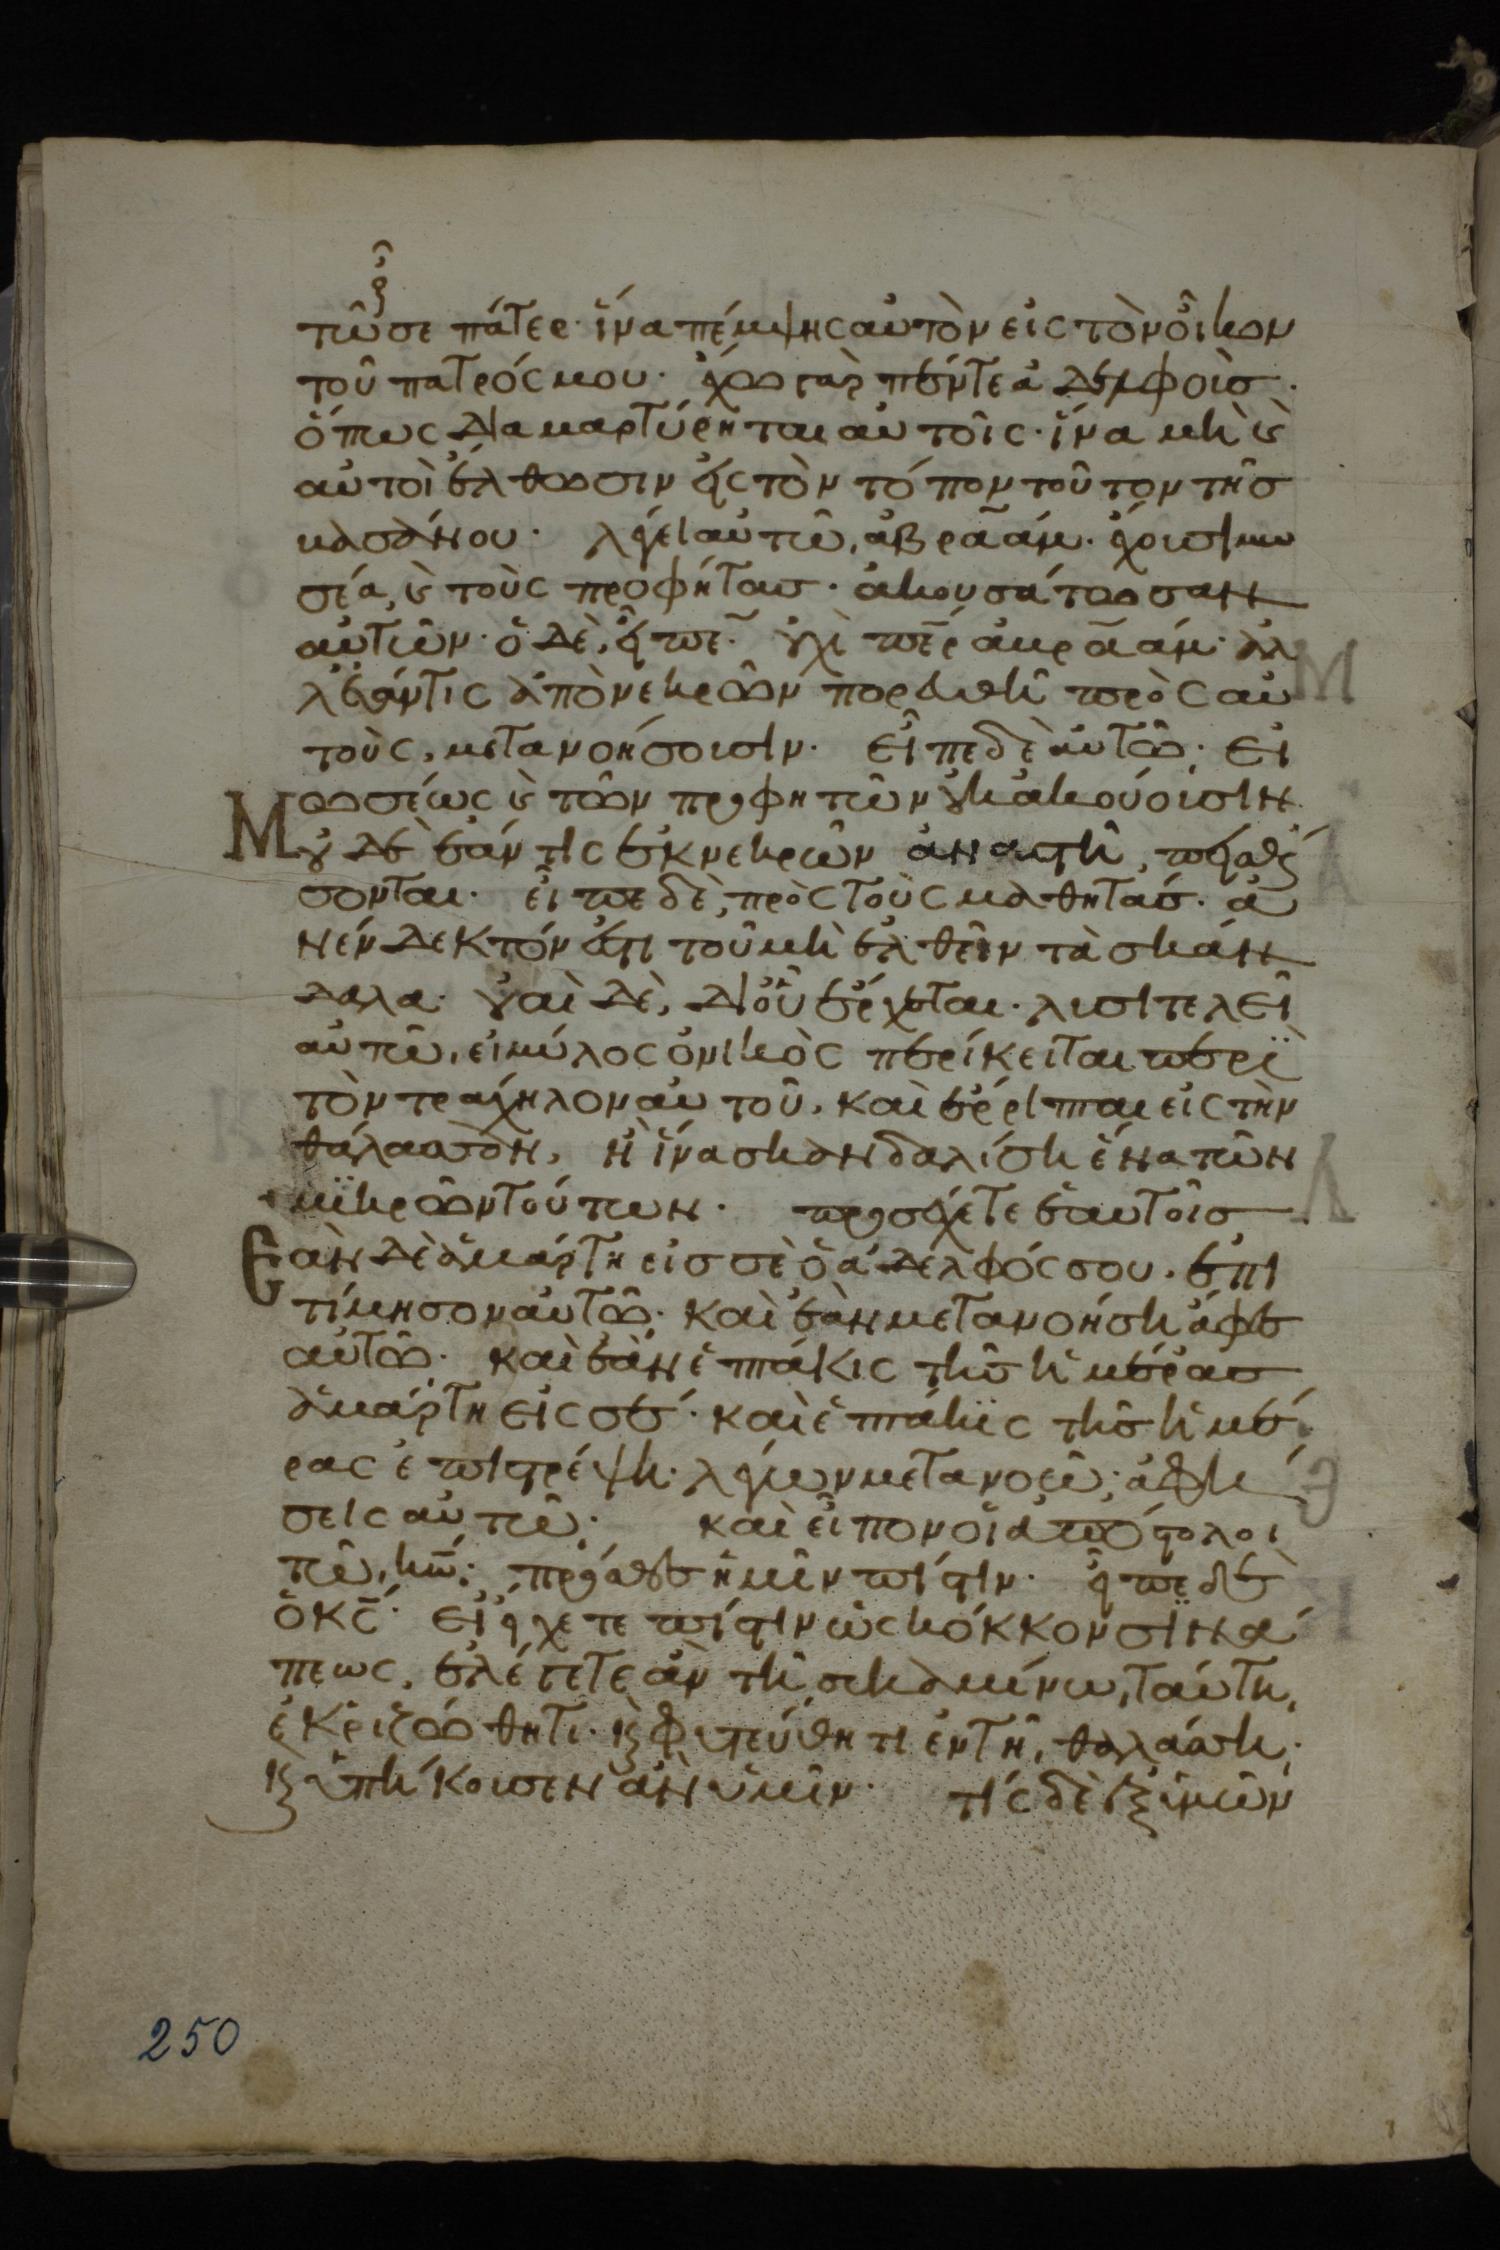 τῶ σε πάτερ· ἵνα πέμψης αὐτὸν εἰς τὸν οἶκον
τοῦ πατρός μου· ἔχω γὰρ πέντε ἀδελφοὺσ·
ὅπως διαμαρτύρηται αὐτοῖς· ἵνα μὴ καὶ
αὐτοὶ ἔλθωσιν εἰς τὸν τόπον τοῦτον τῆσ
βασάνου· λέγει αὐτῶ, ἀβραάμ· ἔχουσι μω
σέα, καὶ τοὺς προφήτασ· ἀκουσάτωσαν
αὐτῶν· ὁ δὲ, εἶπε· οὐχὶ περ ἀβραάμ· ἀλ
λ' ἐάν τις ἀπὸ νεκρῶν πορευθῆ πρὸς αὐ
τοὺς, μετανοήσουσιν· εἶπε δὲ αὐτῶ· εἰ
Μωσέως καὶ τῶν προφητῶν οὐκ ἀκούουσιν
οὐδὲ ἐάν τις ἐκ νεκρῶν ἀναστῆ, πεισθή
σονται· εἶπε δὲ, πρὸς τοὺς μαθητάσ· ἀ
νένδεκτόν ἐστι τοῦ μὴ ἐλθεῖν τὰ σκάν
δαλα· οὐαὶ δὲ, δι' οὗ ἔρχεται· λυσιτελεῖ
αὐτῶ, εἰ μύλος ὀνικὸς περίκειται περὶ
τὸν τράχηλον αὐτοῦ, καὶ ἔρριπται εἰς τὴν
θάλασσαν, ἢ ἵνα σκανδαλίση ἕνα τῶν
μικρῶν τούτων· προσέχετε ἑαυτοῖσ
Ἐὰν δὲ ἁμάρτη εἰσ σὲ ὁ ἀδελφός σου· ἐπι
τίμησον αὐτῶ· καὶ ἐὰν μετανοήση ἄφες
αὐτῶ· καὶ ἐὰν ἑπτάκις τῆσ ἡμέρασ
ἁμάρτη εἰς σέ· καὶ ἑπτάκις τῆσ ἡμέ
ρας ἐπιστρέψη· λέγων μετανοῶ· ἀφή
σεις αὐτῶ· καὶ εἶπον οἱ ἀπόστολοι
τῶ, κω· πρόσθες ἡμῖν πίστιν· εἶπε δὲ
ὁ κς· εἰ εἴχετε πίστιν ὡς κόκκον σινά
πεως, ἐλέγετε ἂν τῆ συκαμίνω, ταύτη,
ἐκριζώθητι· καὶ φυτεύθητι ἐν τῆ, θαλάσση·
καὶ ὑπήκουσεν ἂν ὑμῖν· τίς δὲ ἐξ ὑμῶν
250